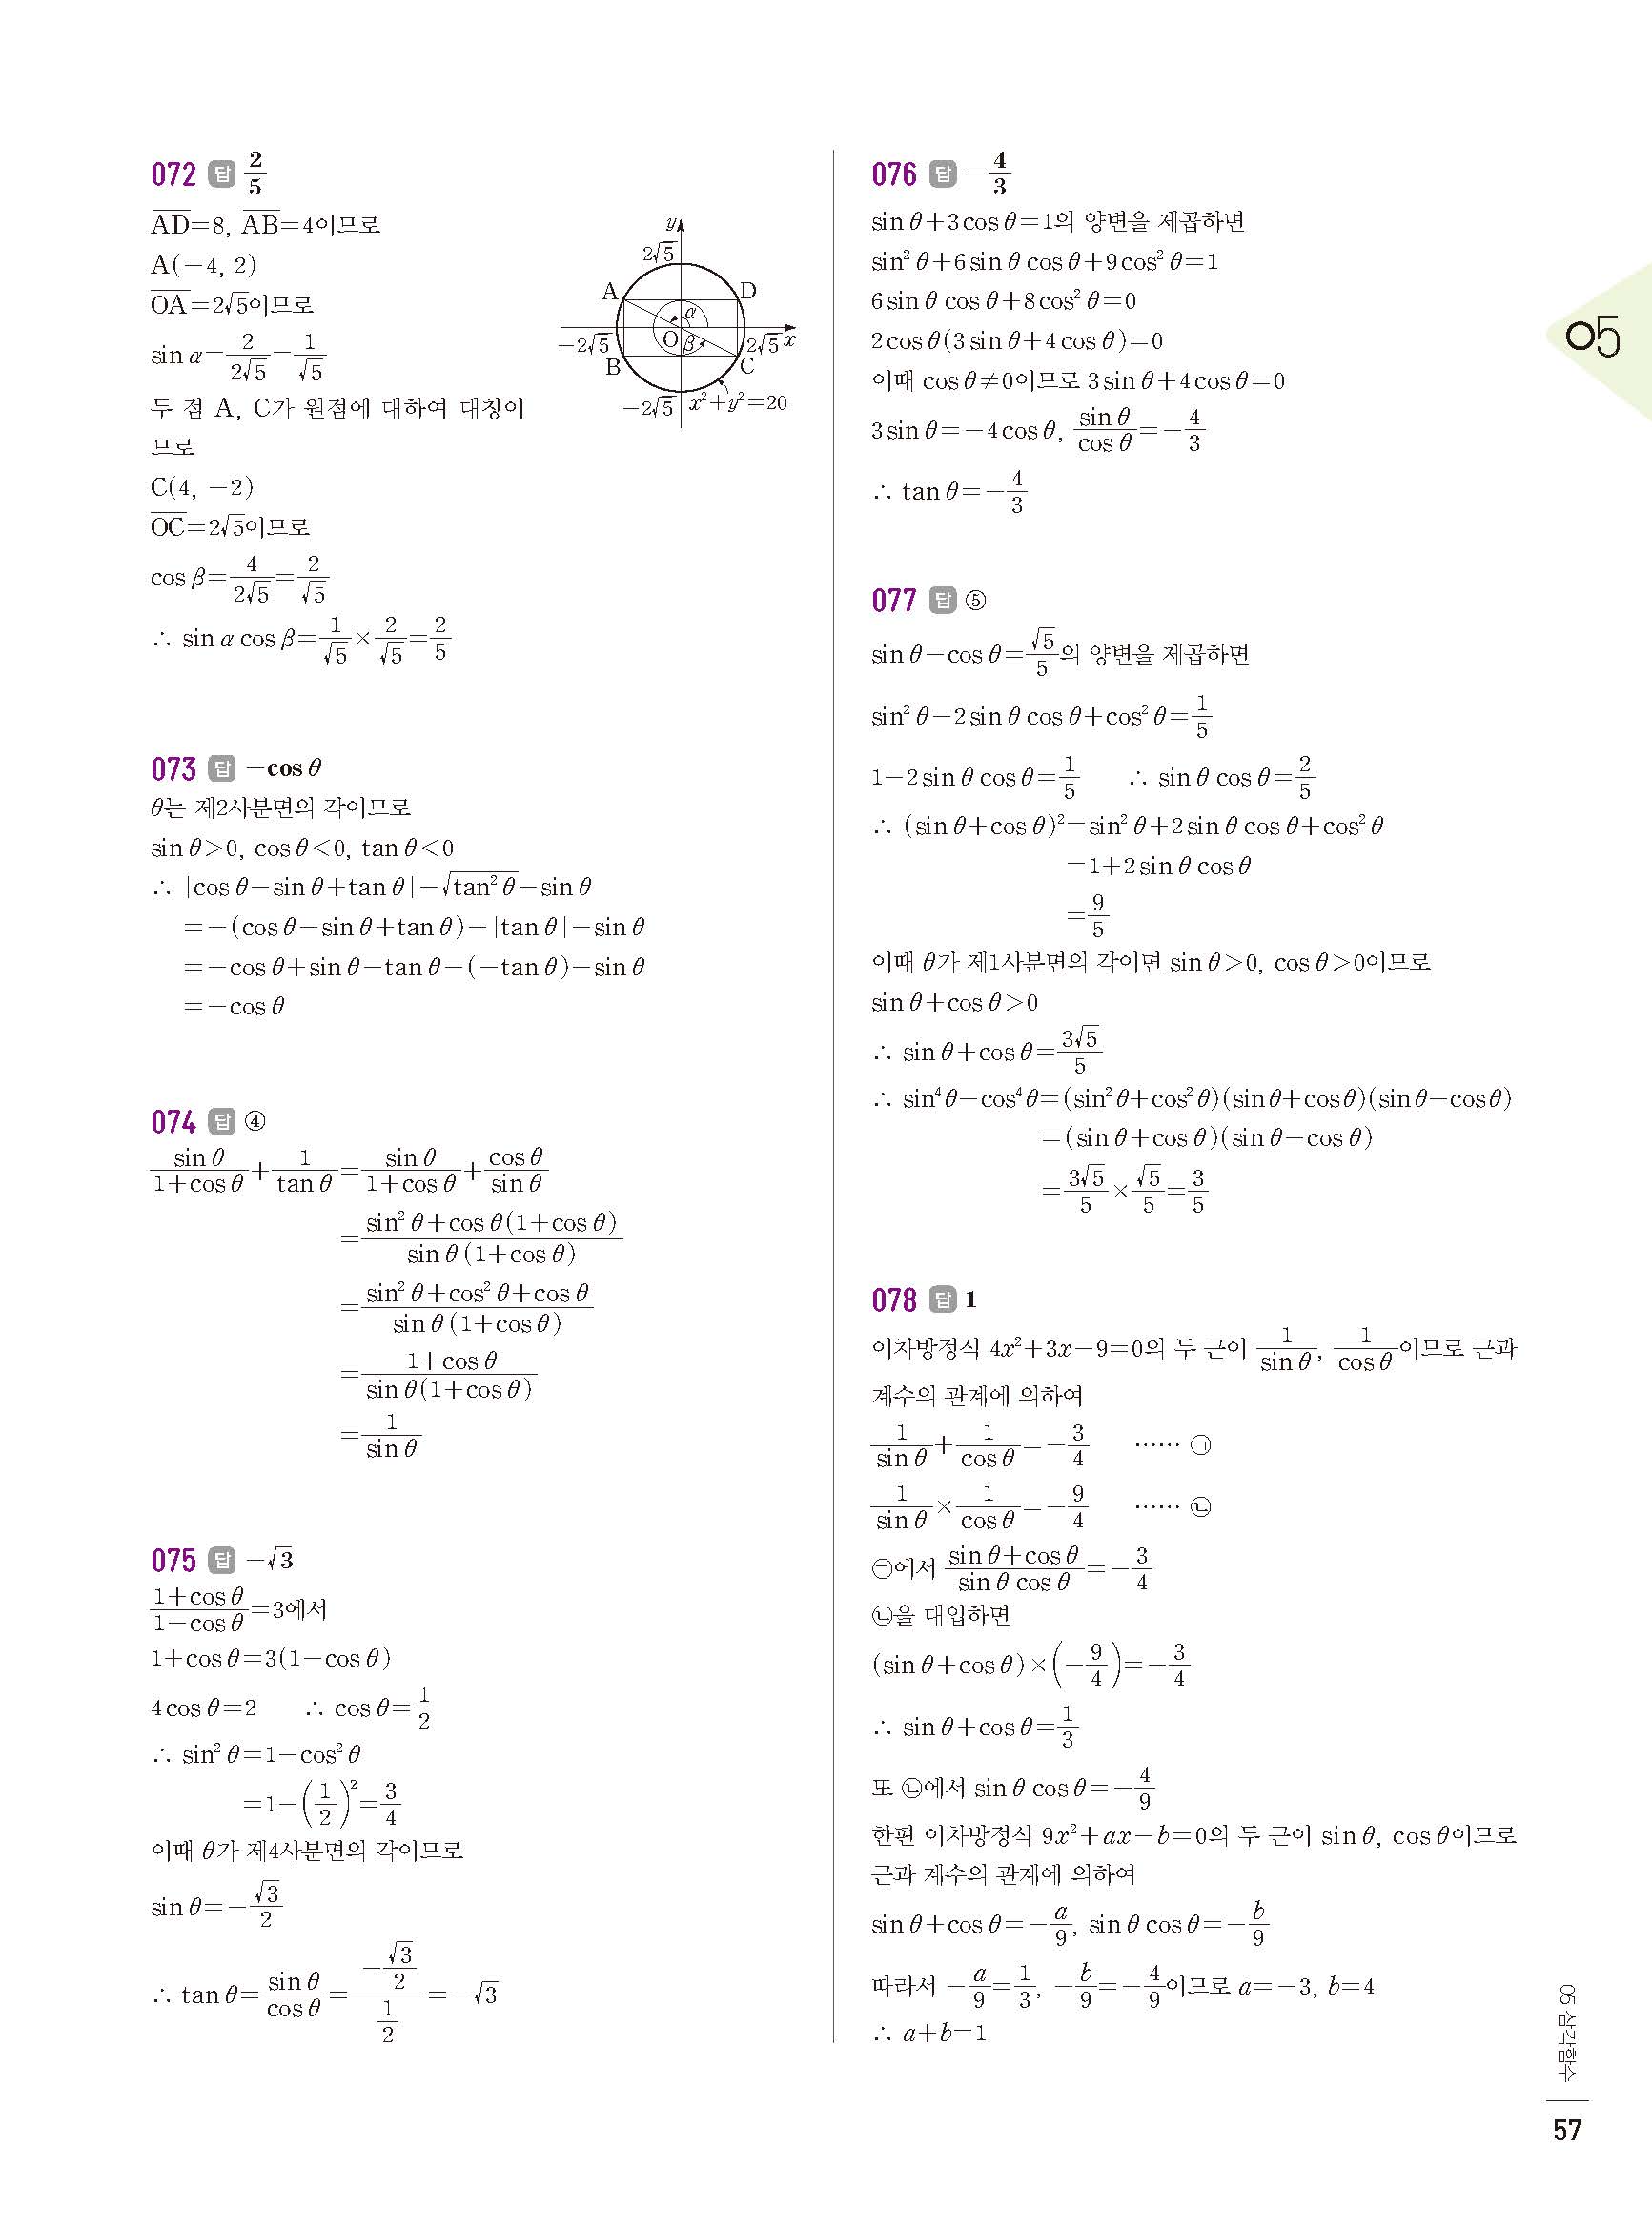 072 답 2/5
AD=8, AB=4이므로
A(-4, 2)
OA=2√5이므로
sin α=2/(2√5)=1/√5
두 점 A, C가 원점에 대하여 대칭이
므로
C(4, -2)
OC=2√5이므로
cos β=4/(2√5)=2/√5
∴ sin α cos β=1/√5×2/√5=2/5
y
2√5
A
D
α
-2√5
O
β
2√5
x
B
C
-2√5
x²+y²=20
073 답 -cos θ
θ는 제2사분면의 각이므로
sin θ>0, cos θ<0, tan θ<0
∴ |cos θ-sin θ+tan θ|-√(tan² θ)-sin θ
=-(cos θ-sin θ+tan θ)-|tan θ|-sin θ
=-cos θ+sin θ-tan θ-(-tan θ)-sin θ
=-cos θ
074 답 ④
sin θ/(1+cos θ)+1/tan θ=sin θ/(1+cos θ)+cos θ/sin θ
=(sin² θ+cos θ(1+cos θ))/(sin θ(1+cos θ))
=(sin² θ+cos² θ+cos θ)/(sin θ(1+cos θ))
=(1+cos θ)/(sin θ(1+cos θ))
=1/sin θ
075 답 -√3
(1+cos θ)/(1-cos θ)=3에서
1+cos θ=3(1-cos θ)
4cos θ=2 ∴ cos θ=1/2
∴ sin² θ=1-cos² θ
=1-(1/2)²=3/4
이때 θ가 제4사분면의 각이므로
sin θ=-√3/2
∴ tan θ=sin θ/cos θ=(-√3/2)/(1/2)=-√3
076 답 -4/3
sin θ+3cos θ=1의 양변을 제곱하면
sin² θ+6sin θ cos θ+9cos² θ=1
6sin θ cos θ+8cos² θ=0
2cos θ(3sin θ+4cos θ)=0
이때 cos θ≠0이므로 3sin θ+4cos θ=0
3sin θ=-4cos θ, sin θ/cos θ=-4/3
∴ tan θ=-4/3
077 답 ⑤
sin θ-cos θ=√5/5의 양변을 제곱하면
sin² θ-2sin θ cos θ+cos² θ=1/5
1-2sin θ cos θ=1/5 ∴ sin θ cos θ=2/5
∴ (sin θ+cos θ)²=sin² θ+2sin θ cos θ+cos² θ
=1+2sin θ cos θ
=9/5
이때 θ가 제1사분면의 각이면 sin θ>0, cos θ>0이므로
sin θ+cos θ>0
∴ sin θ+cos θ=3√5/5
∴ sin⁴ θ-cos⁴ θ=(sin² θ+cos² θ)(sin θ+cos θ)(sin θ-cos θ)
=(sin θ+cos θ)(sin θ-cos θ)
=3√5/5×√5/5=3/5
078 답 1
이차방정식 4x²+3x-9=0의 두 근이 1/sin θ, 1/cos θ이므로 근과
계수의 관계에 의하여
1/sin θ+1/cos θ=-3/4 …… ㉠
1/sin θ×1/cos θ=-9/4 …… ㉡
㉠에서 (sin θ+cos θ)/(sin θ cos θ)=-3/4
㉡을 대입하면
(sin θ+cos θ)×(-9/4)=-3/4
∴ sin θ+cos θ=1/3
또 ㉡에서 sin θ cos θ=-4/9
한편 이차방정식 9x²+ax-b=0의 두 근이 sin θ, cos θ이므로
근과 계수의 관계에 의하여
sin θ+cos θ=-a/9, sin θ cos θ=-b/9
따라서 -a/9=1/3, -b/9=-4/9이므로 a=-3, b=4
∴ a+b=1
05
05 삼각함수
57